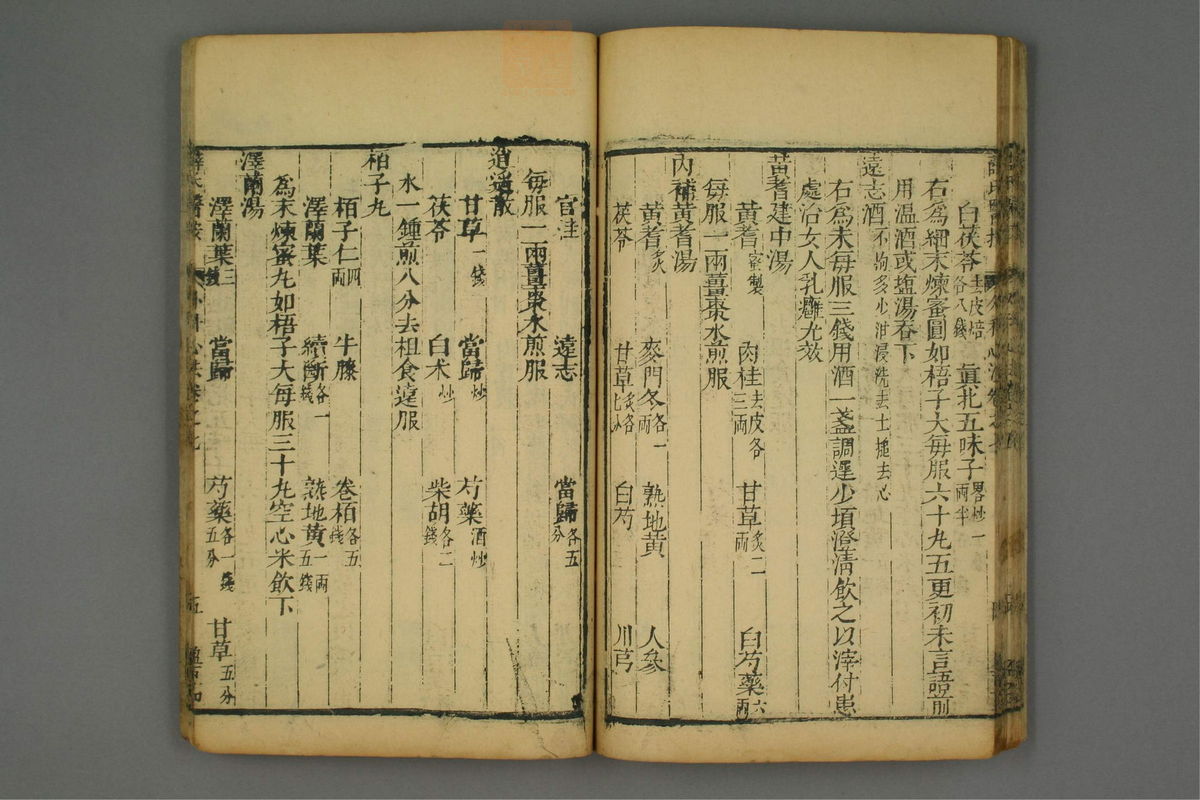 白茯苓去皮焙各八錢 眞北五味子畧炒一兩半
右爲細末煉蜜圓如梧子大每服六十九五更初未言語前
用温酒或塩湯吞下
遠志酒不拘多少泔浸洗去土搥去心
右爲末每服三錢用酒一盞調遲少頃澄清飲之以滓付患
處治女人乳癰尤效
黃耆建中湯
黃耆蜜製 肉桂去皮各三兩 甘草炙二兩 白芍藥六兩
每服一兩薑棗水煎服
內補黃耆湯
黃耆炙 麥門冬各一兩 熟地黃 人參
茯苓 甘草炙各七分 白芍 川芎
官桂 遠志 當歸各五分
每服一兩薑棗水煎服
逍遥散
甘草一錢 當歸炒 芍藥酒炒
茯苓 白术炒 柴胡各二錢
水一鍾煎八分去柤食遠服
栢子九
栢子仁四兩 牛膝 卷栢各五錢
澤蘭葉 續斷各一錢 熟地黃一兩五錢
爲末煉蜜九如梧子大每服三十九空心米飲下
澤蘭湯
澤蘭葉三錢 當歸 芍藥各一錢五分 甘草五分